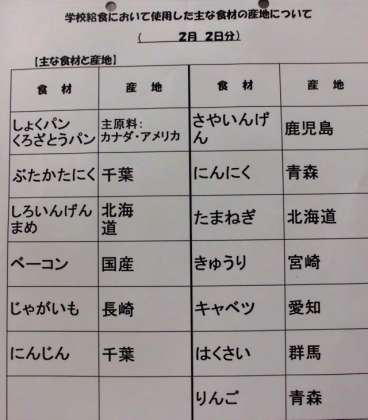 学校給食において使用した主な食材の産地について
(2月 2日分)
【主な食材と産地】
食 材 産 地 食 材 産 地
しょくパン
くろざとうパン
主原料:
カナダ・アメリカ
さやいんげ
ん
鹿児島
ぶたかたにく 千葉 にんにく 青森
しろいんげん
まめ
北海
道
たまねぎ 北海道
ベーコン 国産 きゅうり 宮崎
じゃがいも 長崎 キャベツ 愛知
にんじん 千葉 はくさい 群馬
りんご 青森